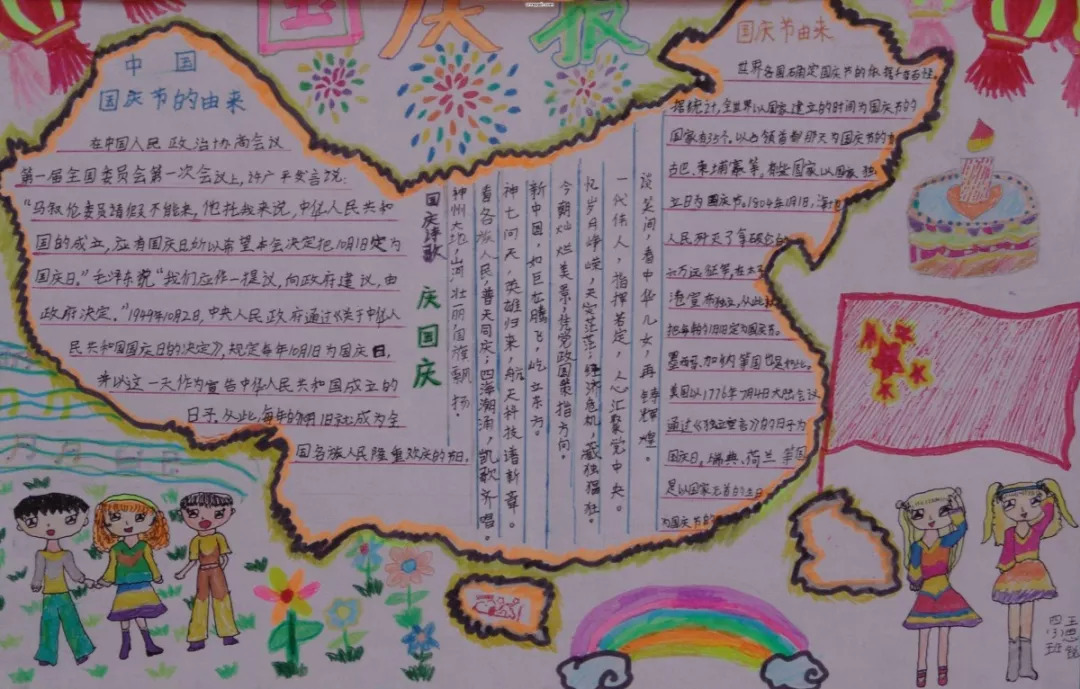 国庆报
中国
国庆节的由来
在中国人民政治协商会议
第一届全国委员会第一次会议上,许广平发言说:
“马叙伦委员请假不能来,他托我来说,中华人民共和
国的成立,应有国庆日所以希望本会决定把10月1日定为
国庆日。”毛泽东说“我们应作一提议,向政府建议,由
政府决定。”1949年10月2日,中央人民政府通过《关于中华人
民共和国国庆日的决定》,规定每年10月1日为国庆日,
并以这一天作为宣告中华人民共和国成立的
日子。从此,每年的10月1日就成为全
国各族人民隆重欢庆的节日。
国庆诗歌
庆国庆
神州大地,山河壮丽,国旗飘扬。
看各族人民,普天同庆;四海潮涌,凯歌齐唱。
神七问天,英雄归来,航天科技谱新章。
新中国,如巨龙腾飞,屹立东方。
今朝灿烂美景,凭党政国策指方向。
忆岁月峥嵘,天灾茫茫;经济危机,藏独猖狂。
一代伟人,指挥若定,人心汇聚党中央。
谈笑间,看中华儿女,再铸辉煌。
国庆节由来
世界各国确定国庆节的依据千奇百怪。
据统计,全世界以国家建立的时间为国庆节的
国家有35个。以占领首都那天为国庆节的有
古巴、柬埔寨等,有些国家以国家独
立日为国庆节。1804年1月1日,海地
人民歼灭了拿破仑的
六万远征军,在太子
港宣布独立,从此
把每年的1月1日定为国庆节。
墨西哥、加纳等国也是如此。
美国以1776年7月4日大陆会议
通过《独立宣言》的日子为
国庆日。瑞典、荷兰等国
是以国家元首的生日
为国庆节的
四(3)班
王思锐